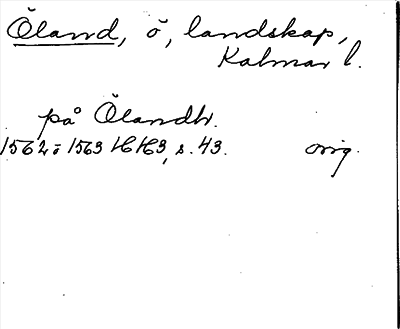 Öland, ö, landskap,
Kalmar l.
på Ölandh.
1562-1563 HH3, s. 43. orig.